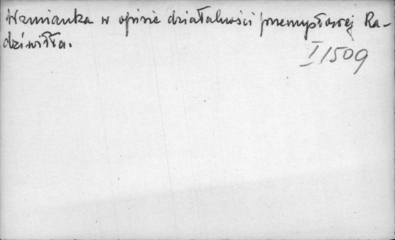 Wzmianka w opisie działalności przemysłowej Ra-
dziwiłła.
I 1509